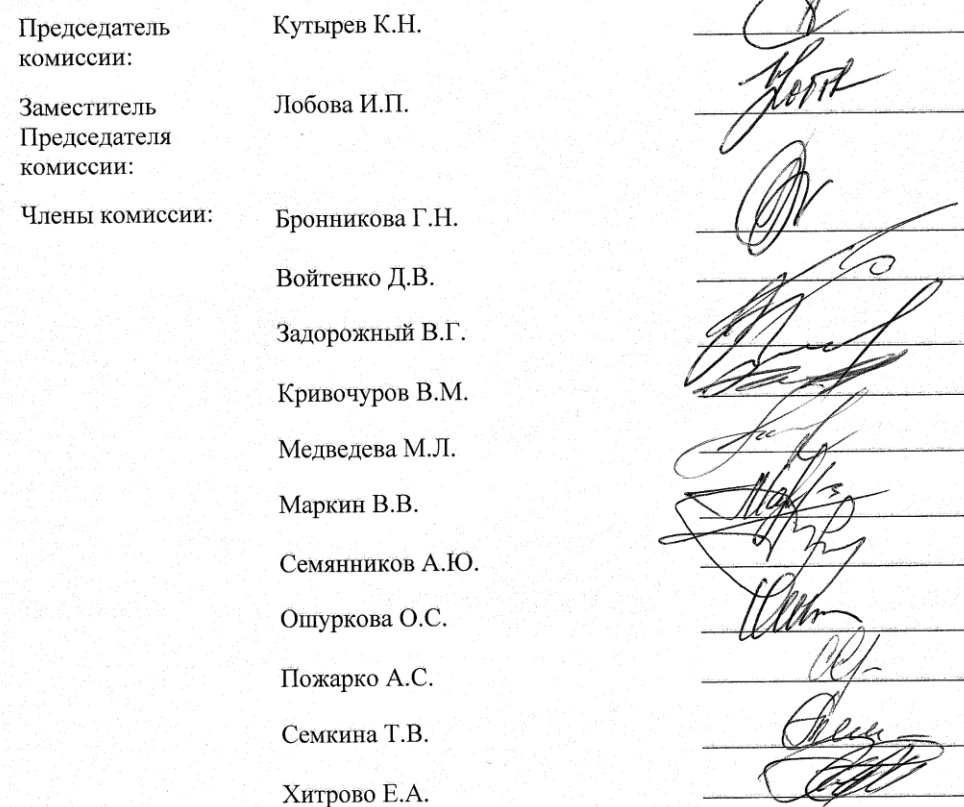 Председатель Кутырев К.Н.
комиссии:
Заместитель Лобова И.П.
Председателя
комиссии:
Члены комиссии: Бронникова Г.Н.
Войтенко Д.В.
Задорожный В.Г.
Кривочуров В.М.
Медведева М.Л.
Маркин В.В.
Семянников А.Ю.
Ошуркова О.С.
Пожарко А.С.
Семкина Т.В.
Хитрово Е.А.